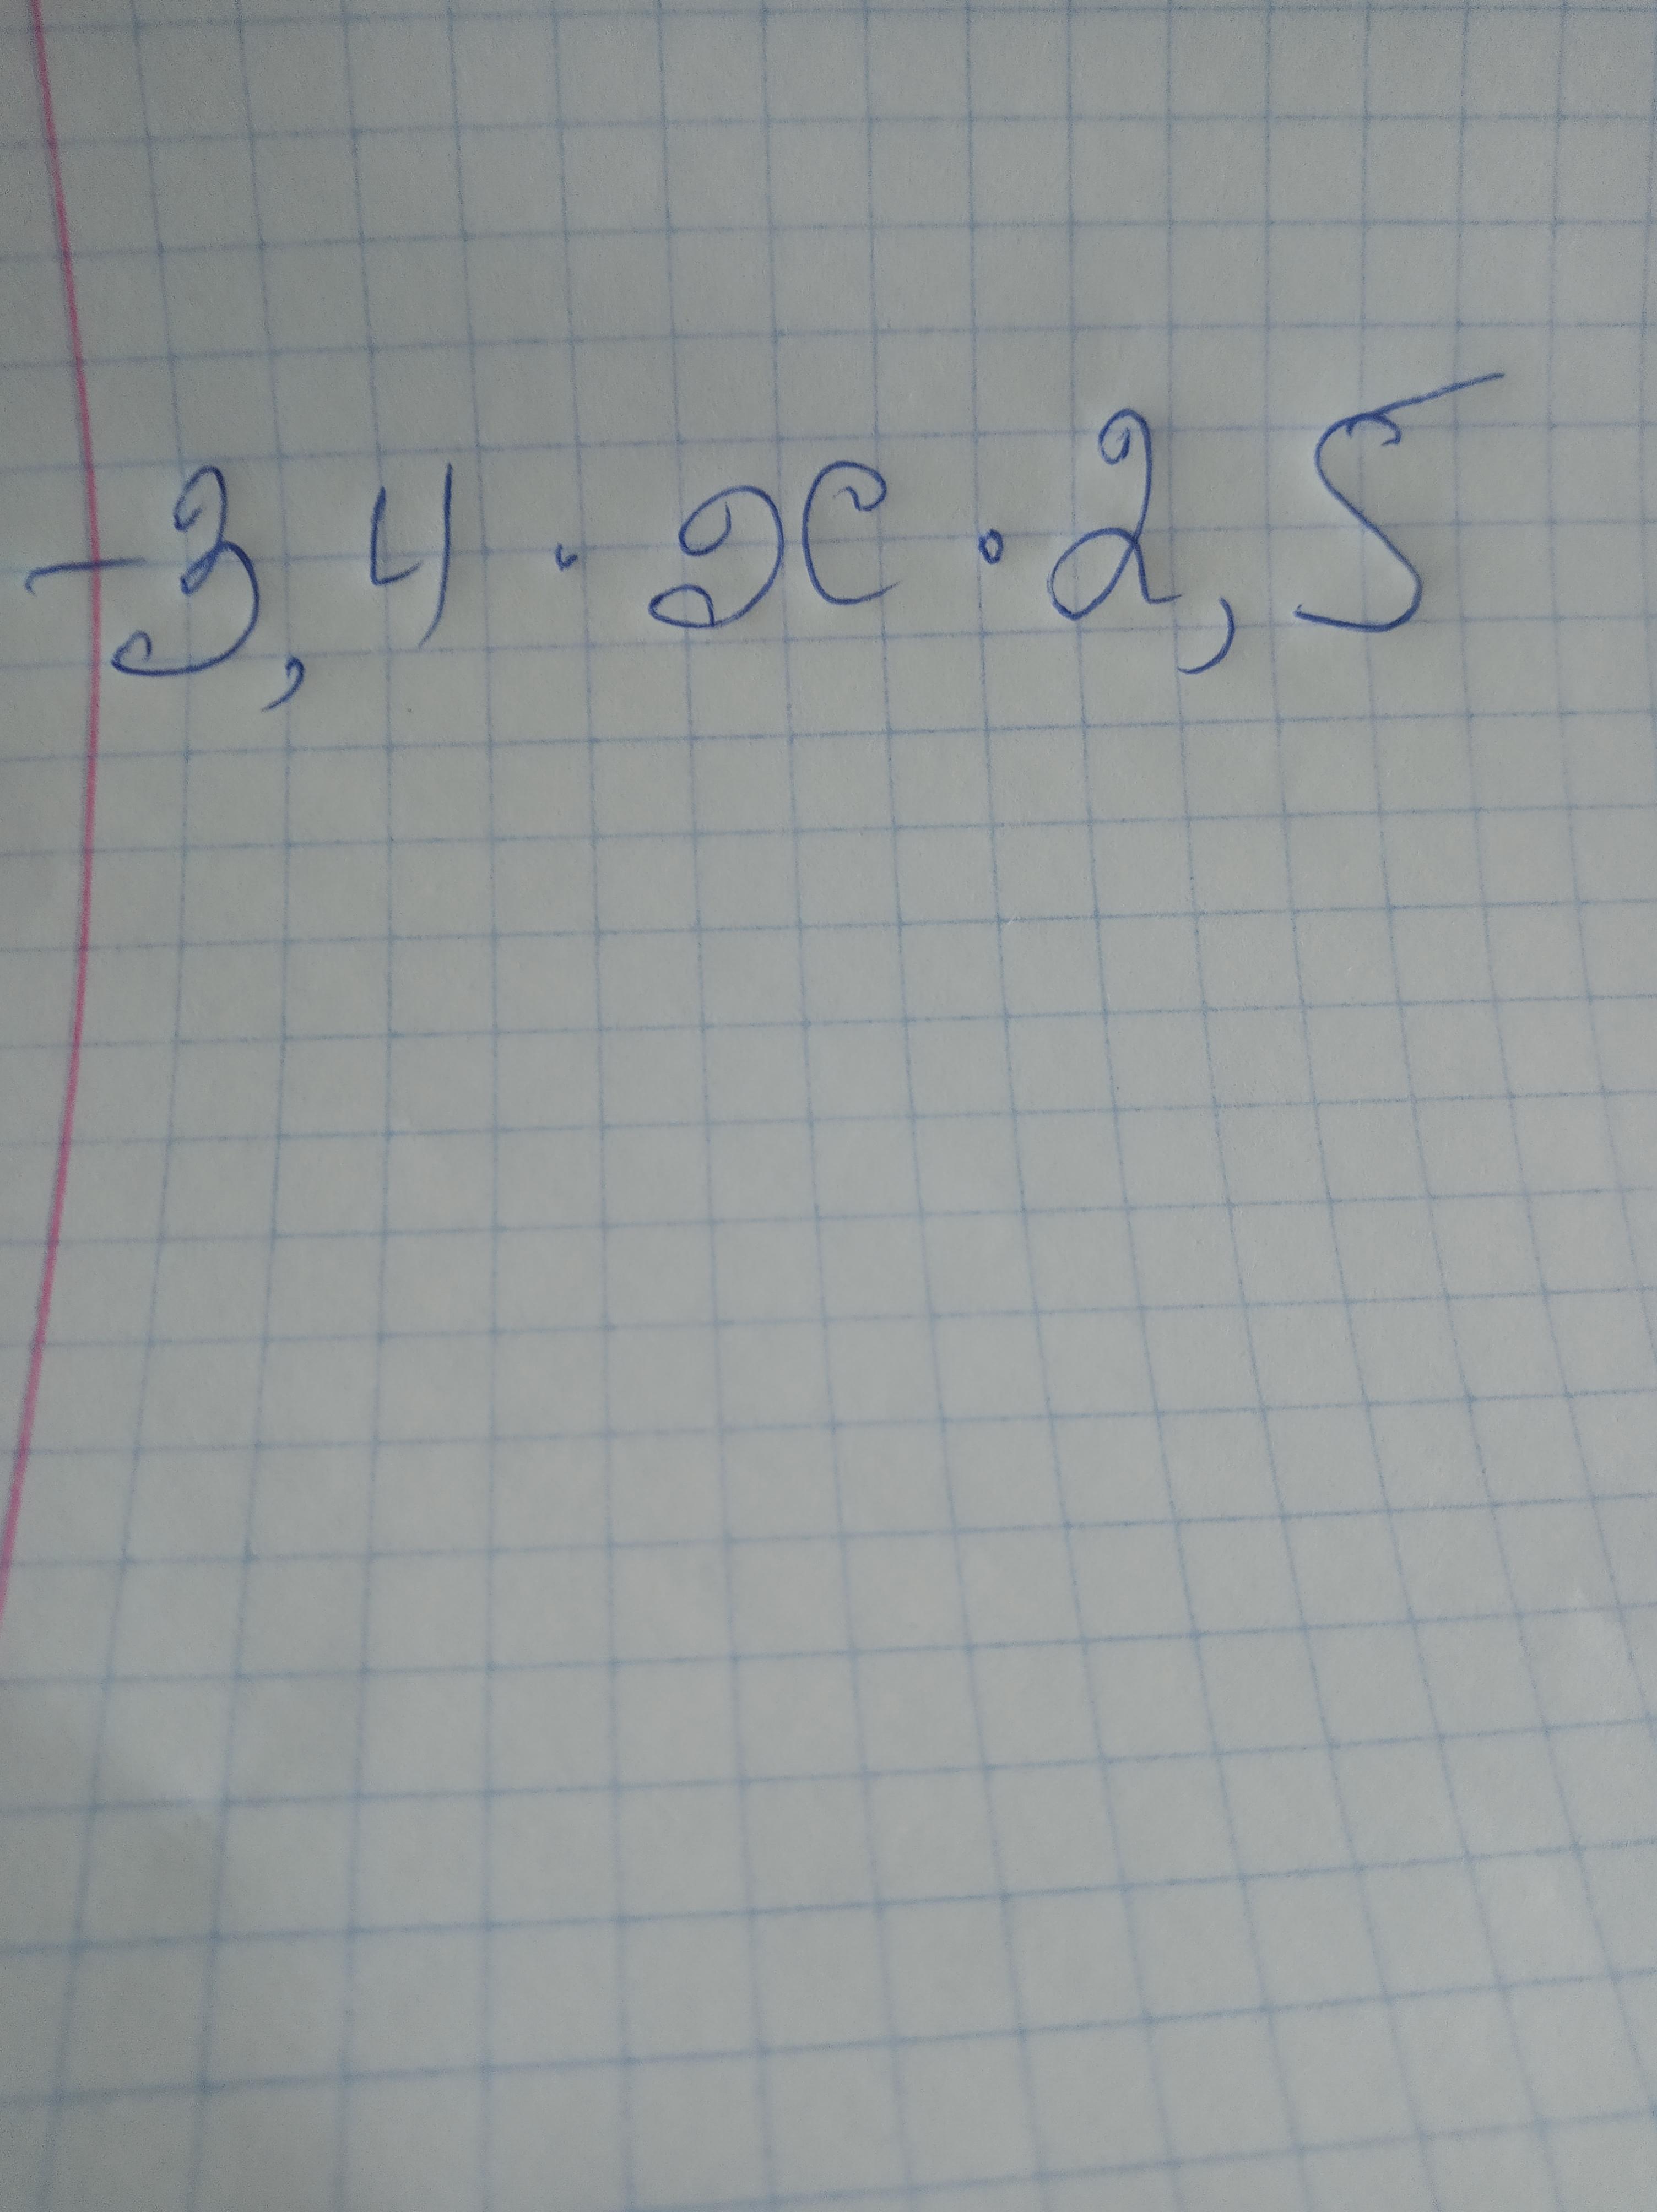 -3,4 · x · 2,5